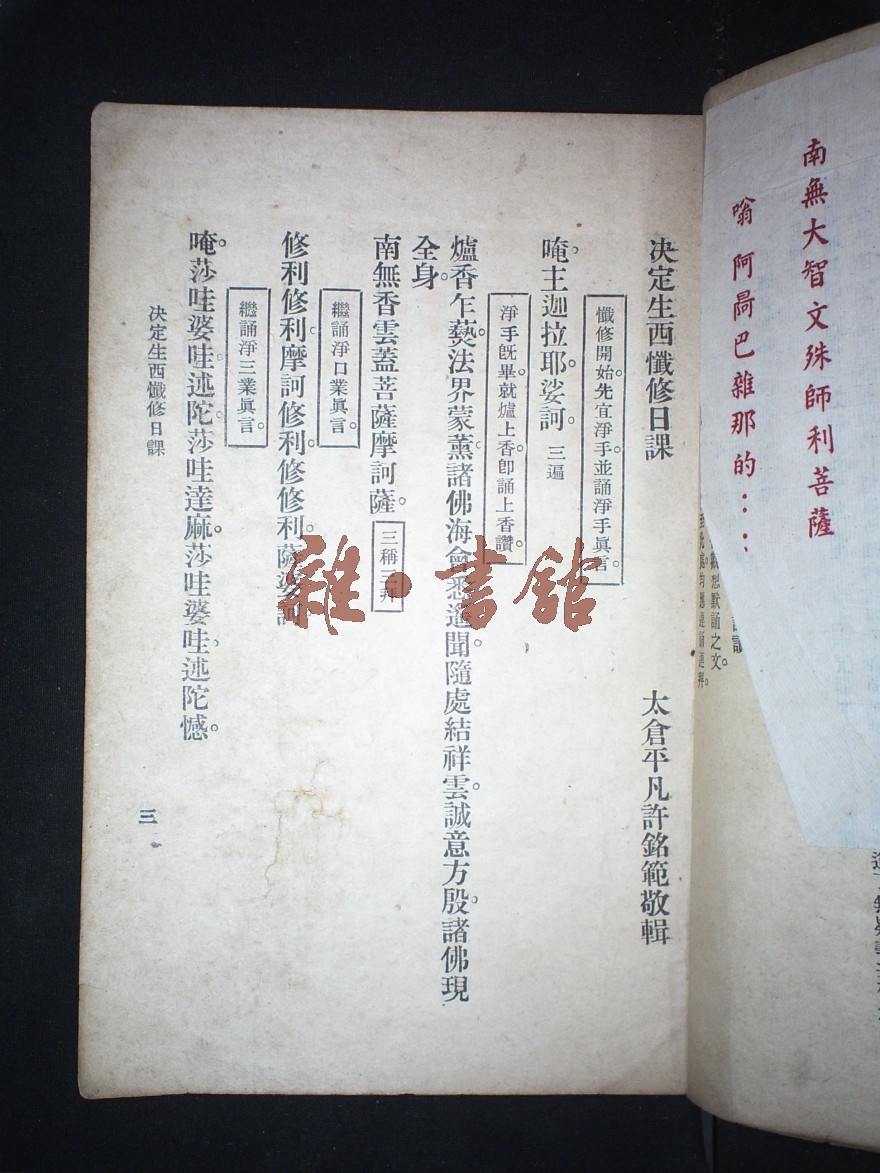 南無大智文殊師利菩薩
嗡阿咼巴雜那的：：
觀想默誦之文。
决定生西懺修日課　太倉平凡許銘範敬輯
懺修開始。先宜淨手。並誦淨手眞言。
唵。主迦拉耶娑訶。三遍
淨手旣畢。就爐上香。卽誦上香讚。
爐香乍爇。法界蒙薰。諸佛海會悉遙聞。隨處結祥雲。誠意方殷。諸佛現
全身。
南無香雲蓋菩薩摩訶薩。三稱三拜
繼誦淨口業眞言。
修利修利。摩訶修利。修修利。薩婆訶。
繼誦淨三業眞言。
唵。莎哇婆哇。述陀。莎哇達麻。莎哇婆哇。述陀憾。
决定生西懺修日課
三
雜·書館